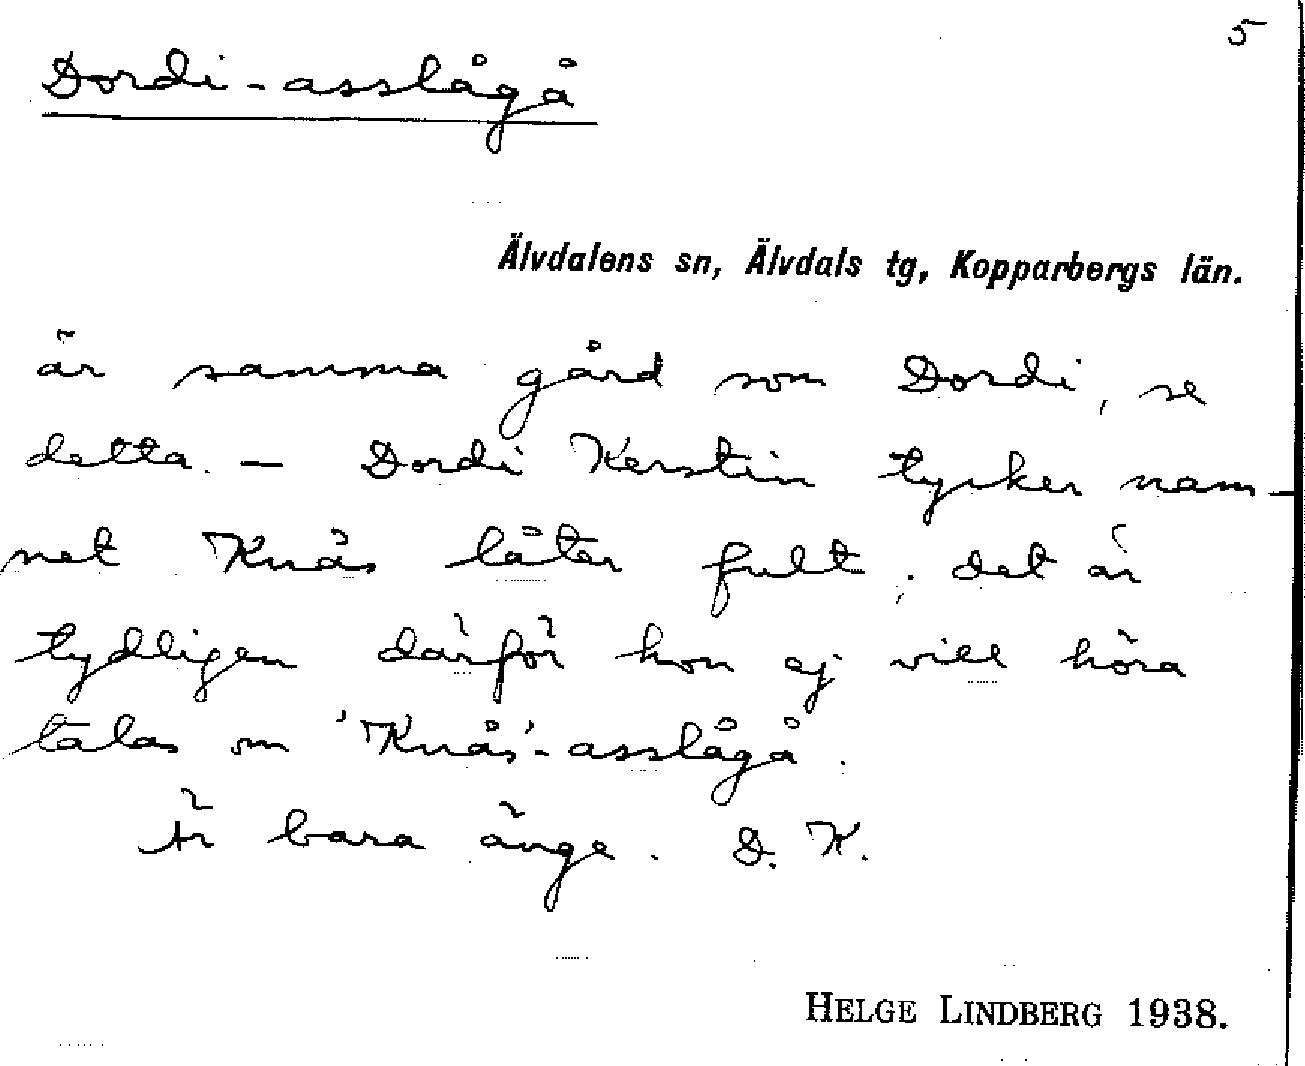 5
Dordi-asslågå
Älvdalens sn, Älvdals tg, Kopparbergs län.
är samma gård som Dordi, se
detta. – Dordi Kerstin tycker nam-
net Knås låter fult; det är
tydligen därför hon ej vill höra
talas om 'Knås'-asslågå.
Är bara änge. D. K.
HELGE LINDBERG 1938.